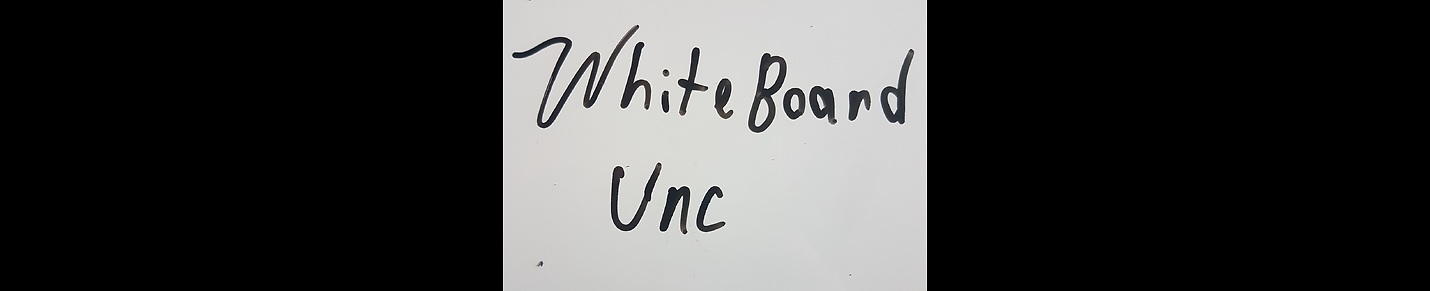 WhiteBoard
Unc